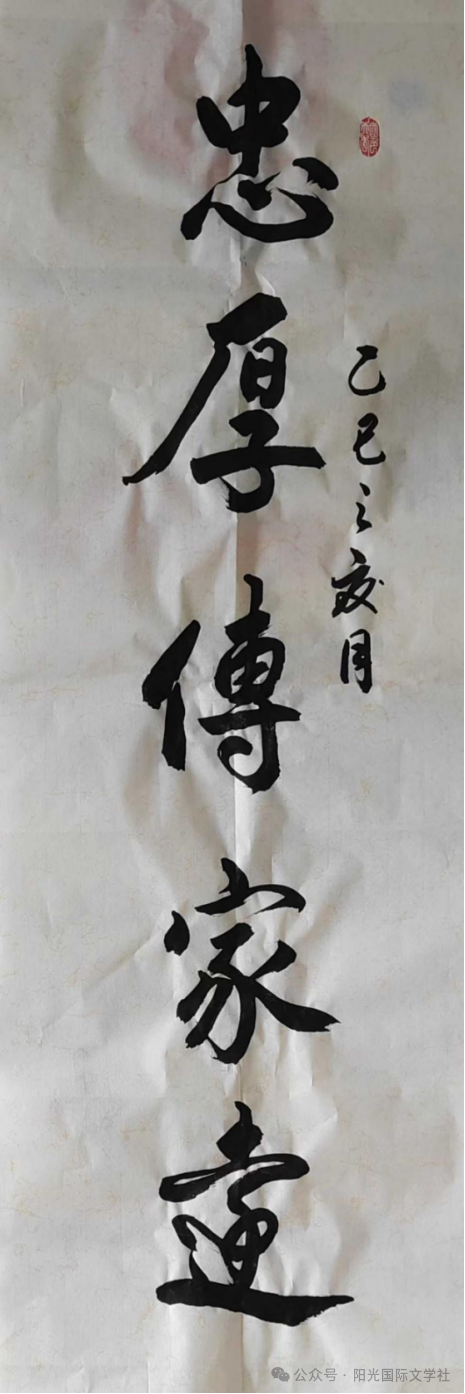 乙巳之夏月
忠厚傳家遠
公众号 · 阳光国际文学社